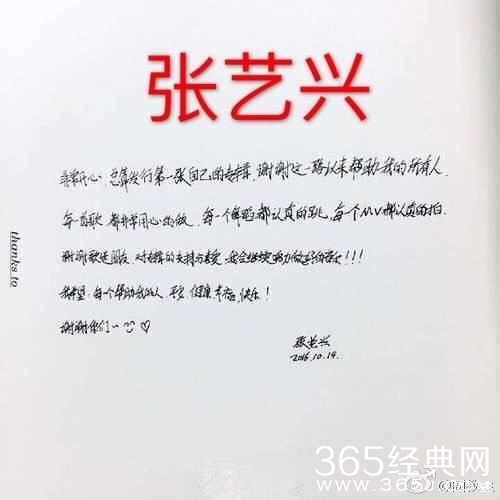 张艺兴
非常开心,总算发行第一张自己的专辑,谢谢这一路以来帮助我的所有人.
每一首歌 都非常用心的做,每一个舞蹈都认真的跳,每个MV都认真的拍.
谢谢歌迷朋友 对专辑的支持与喜爱 我会继续努力做好的音乐!!!
我希望,每个帮助我的人,平安,健康 幸福,快乐!
谢谢你们~
thanks to
张艺兴
2016.10.19.
365经典网
www.365j.com